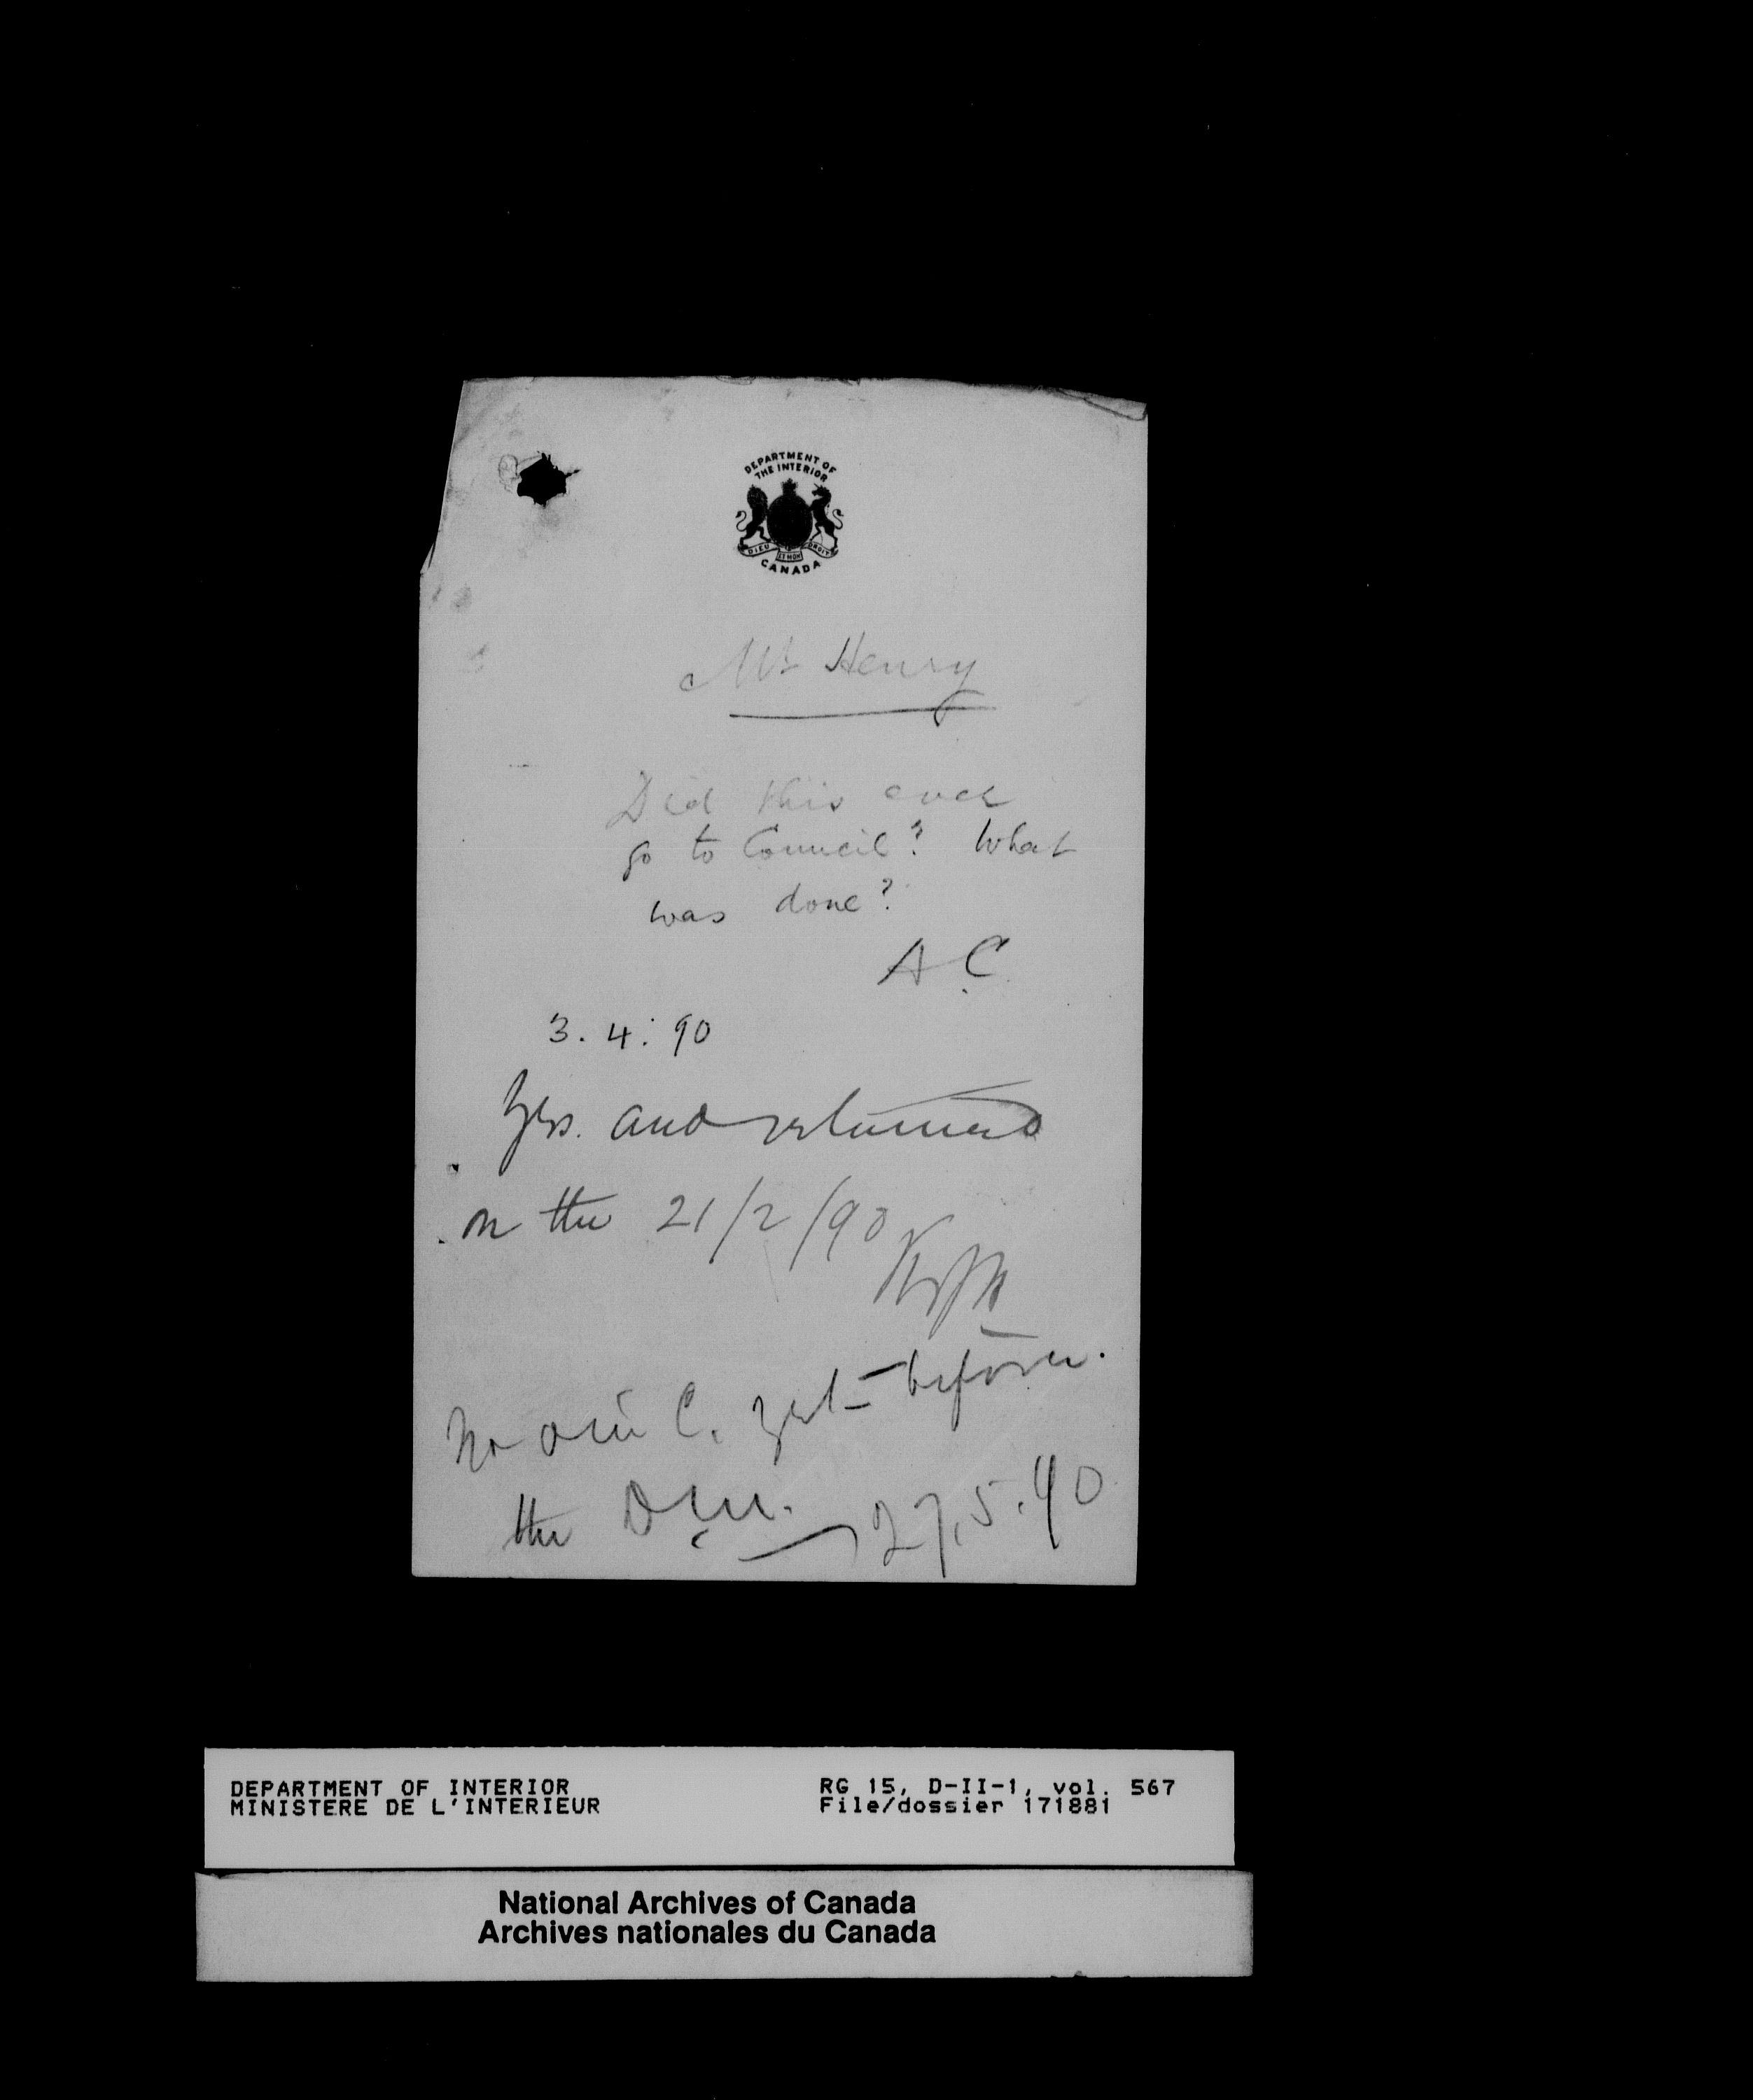 DEPARTMENT OF
THE INTERIOR
DIEU ET MON DROIT
CANADA
Mr Henry
Did this ever
go to Council? What
was done?
A. C.
3. 4: 90
Yes. and returned
on the 21/2/90
No O in C. yet - before
the D.M.
27.5.90
DEPARTMENT OF INTERIOR
MINISTERE DE L'INTERIEUR
RG 15, D-II-1, vol. 567
File/dossier 171881
National Archives of Canada
Archives nationales du Canada